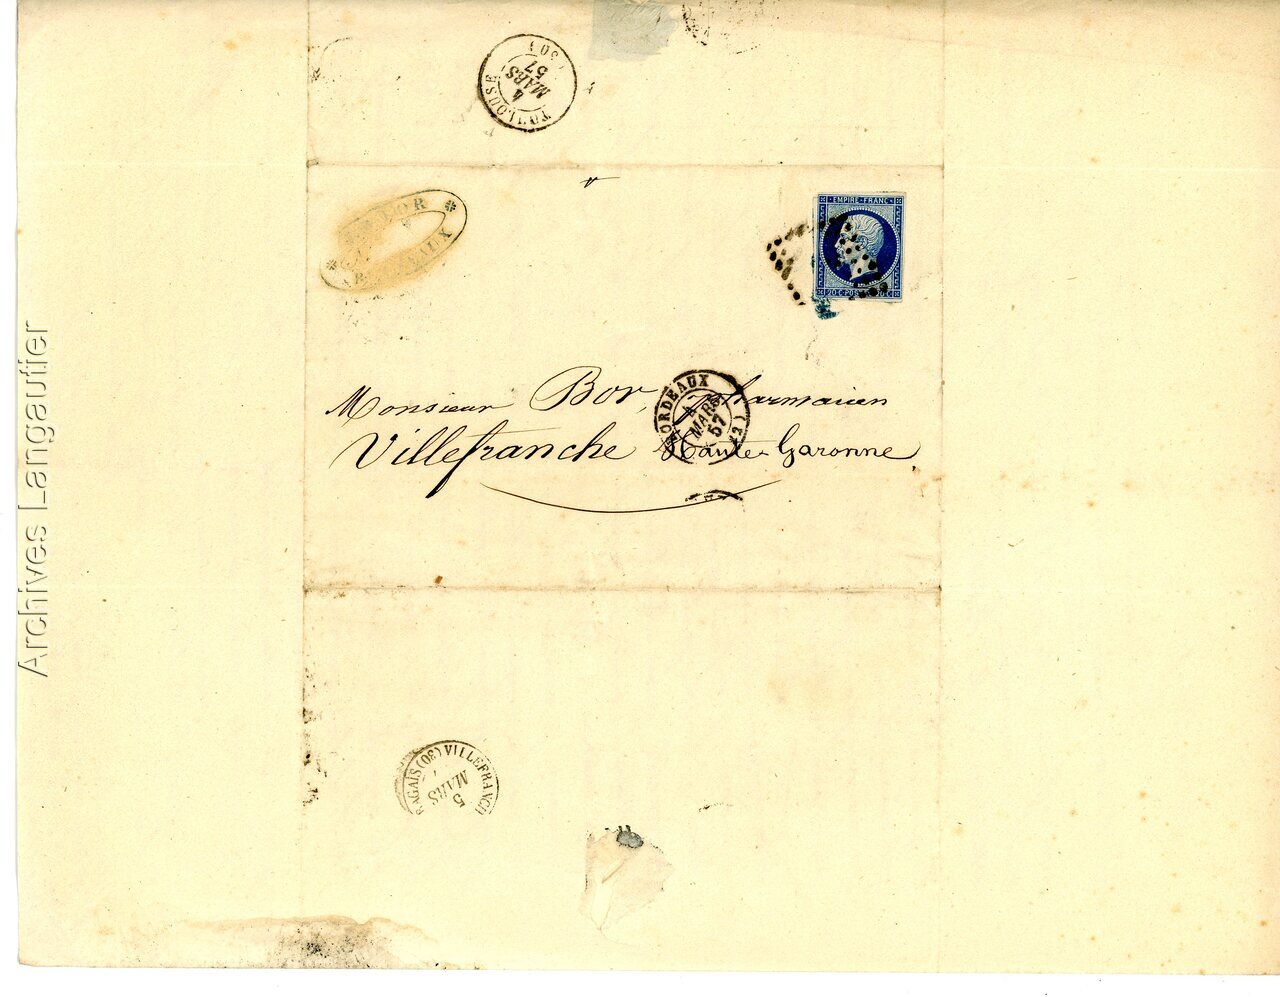 TOULOUSE
4
MARS
57
BORDEAUX
EMPIRE · FRANC
20 C POS
BORDEAUX
4
MARS
57
Monsieur Bor, pharmacien
Villefranche Haute-Garonne
VILLEFRANCH
RAGAIS (30)
5
MARS
Archives Langautier